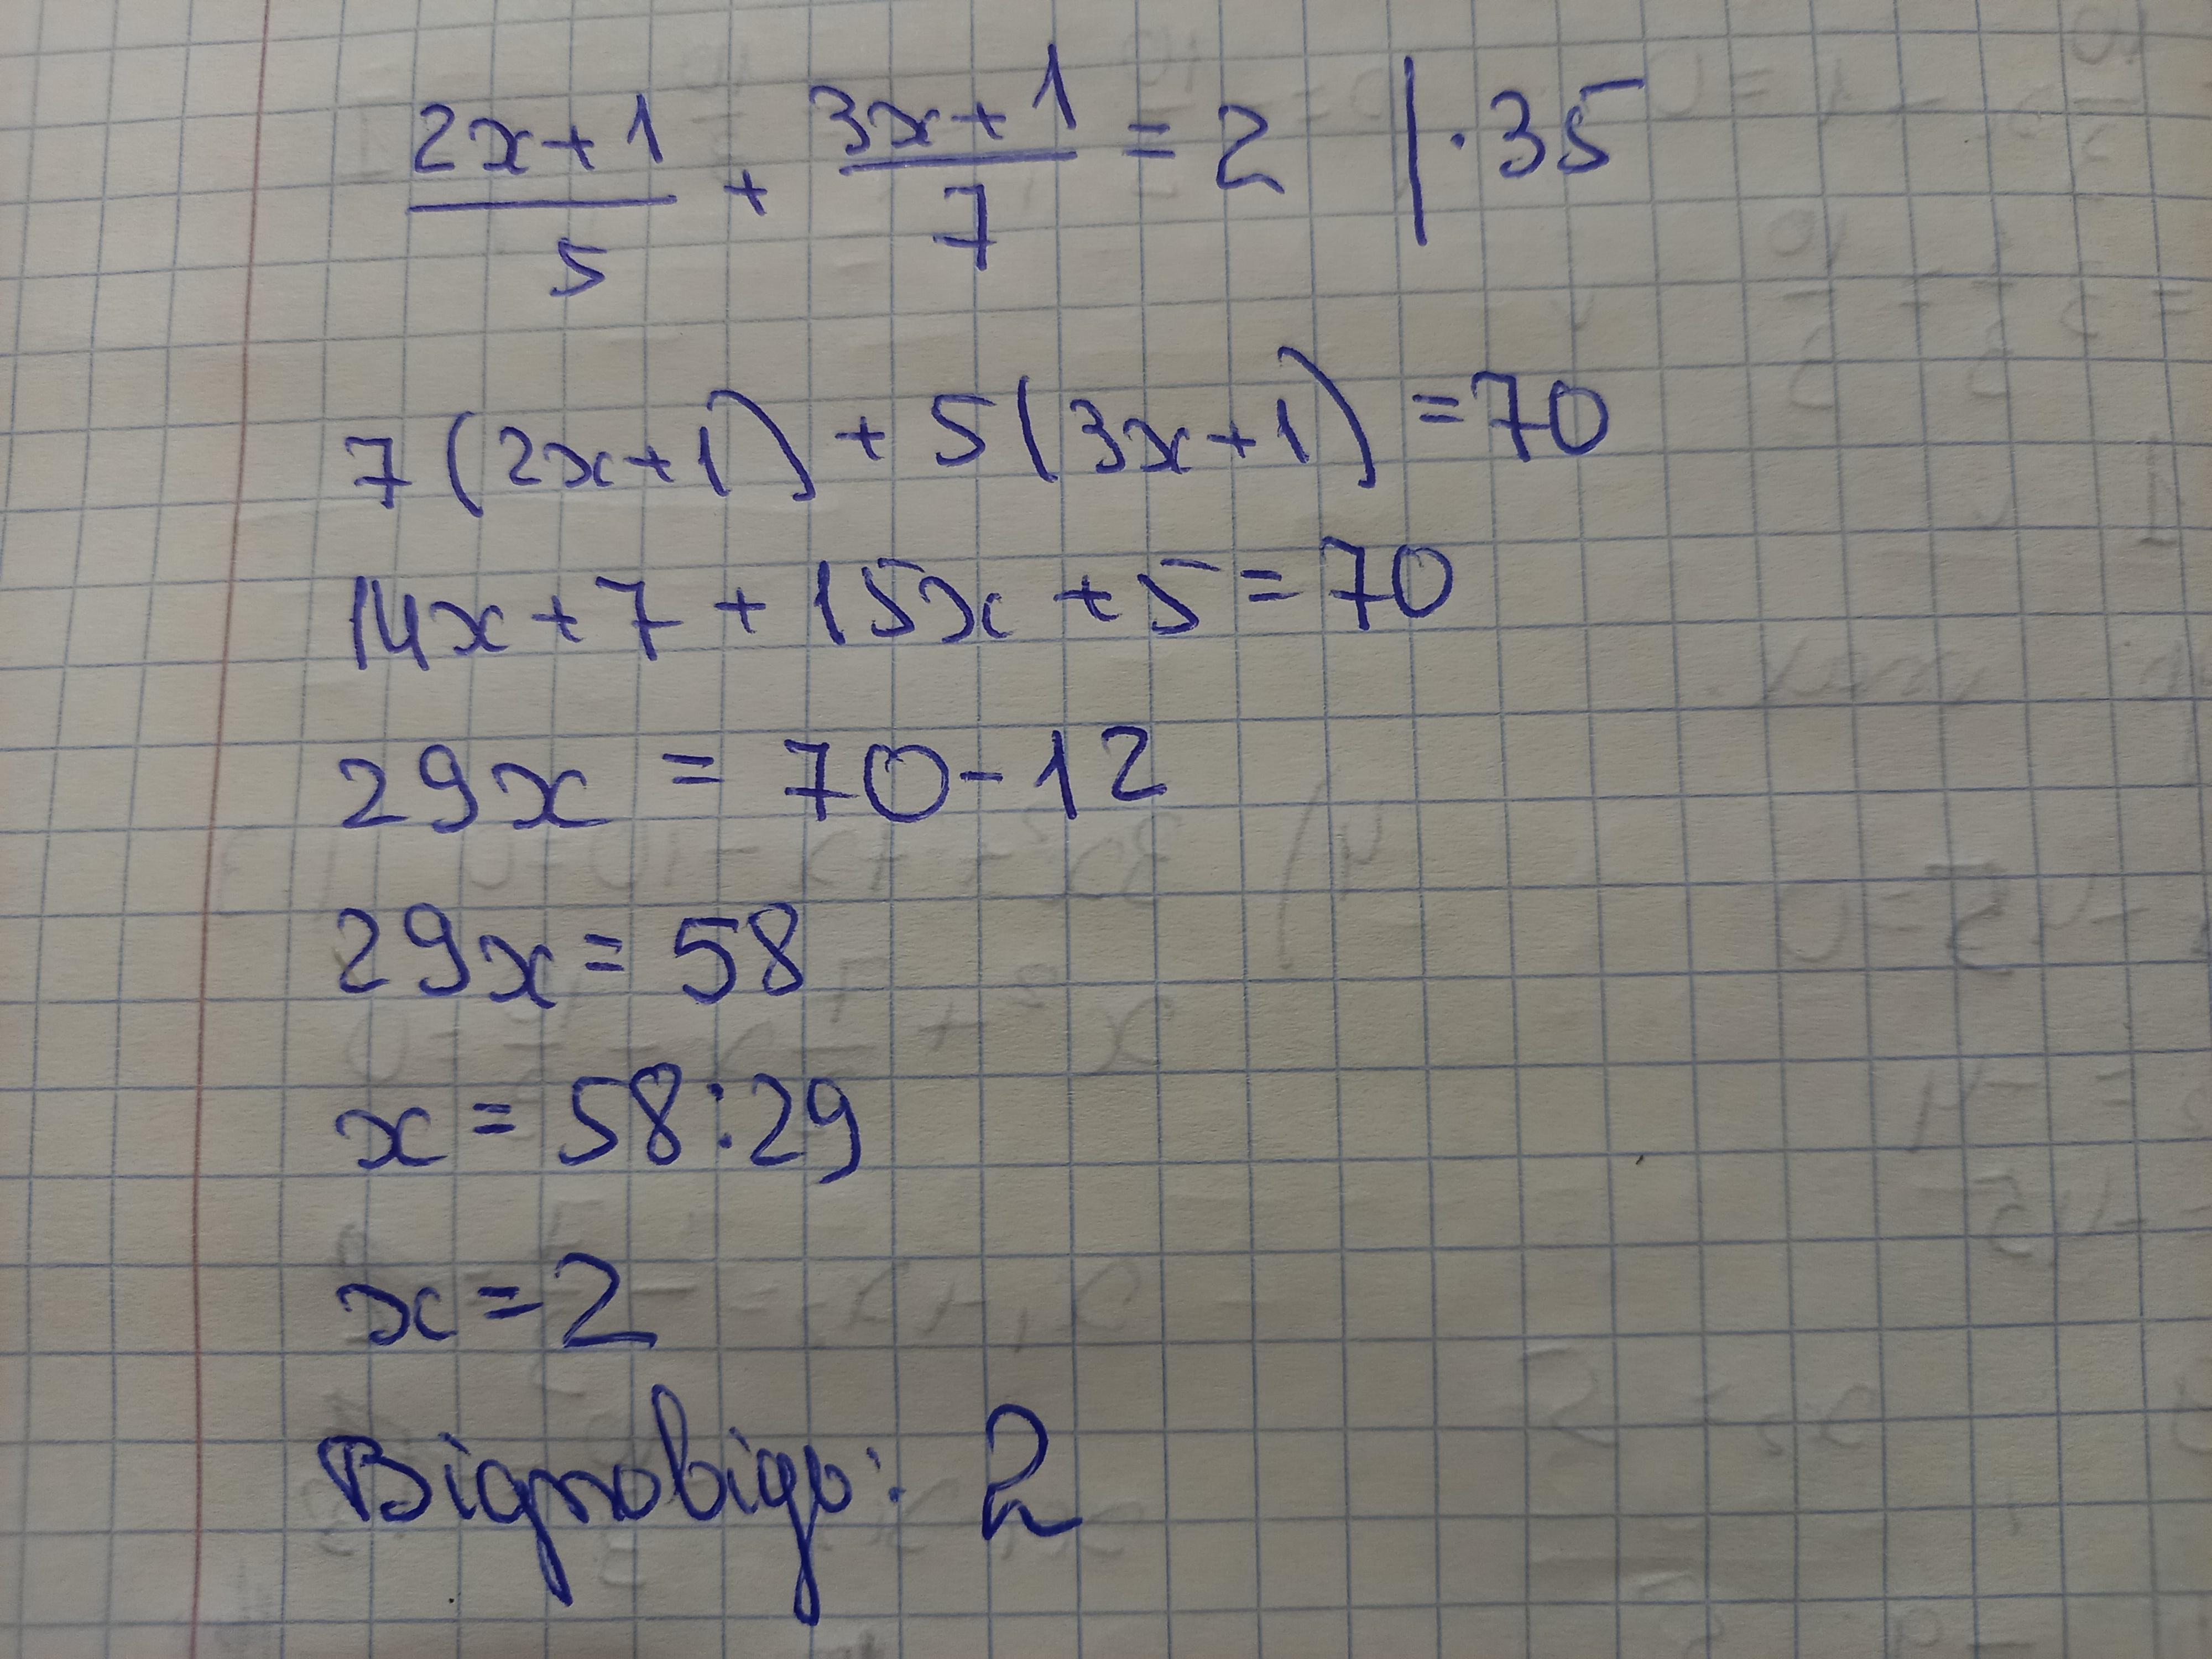 (2x+1)/5 + (3x+1)/7 = 2 | · 35
7(2x+1) + 5(3x+1) = 70
14x + 7 + 15x + 5 = 70
29x = 70 - 12
29x = 58
x = 58:29
x = 2
Відповідь: 2